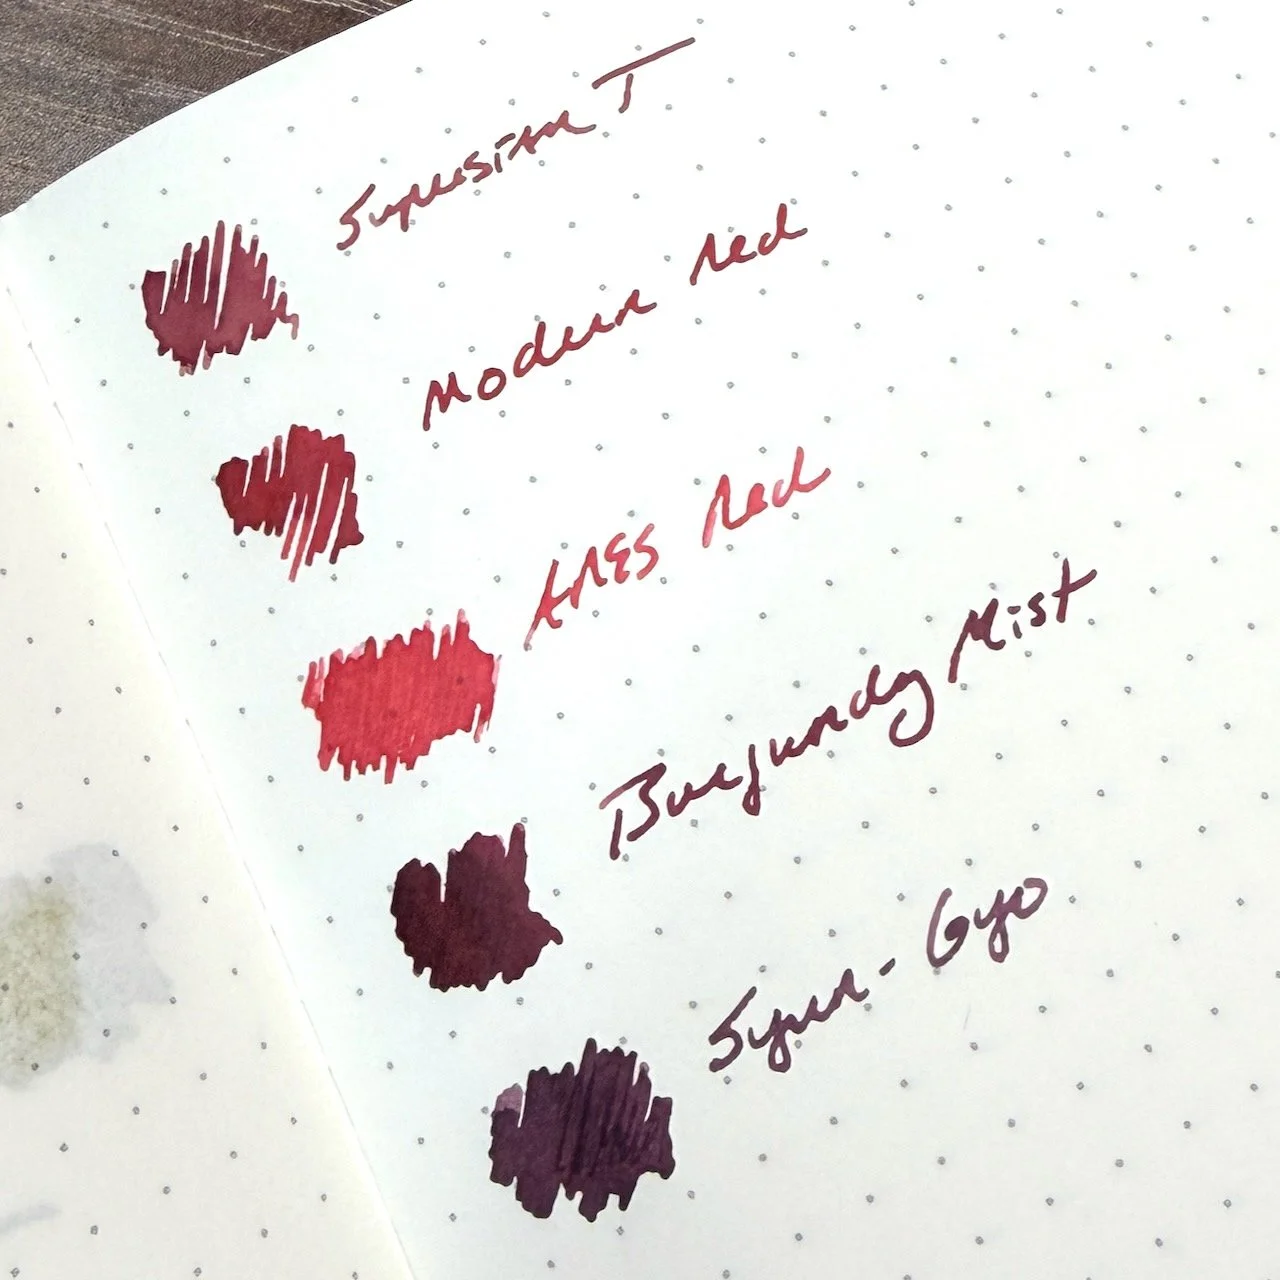 T
Modern Red
ARES Red
Burgundy Mist
Syun-Gyo